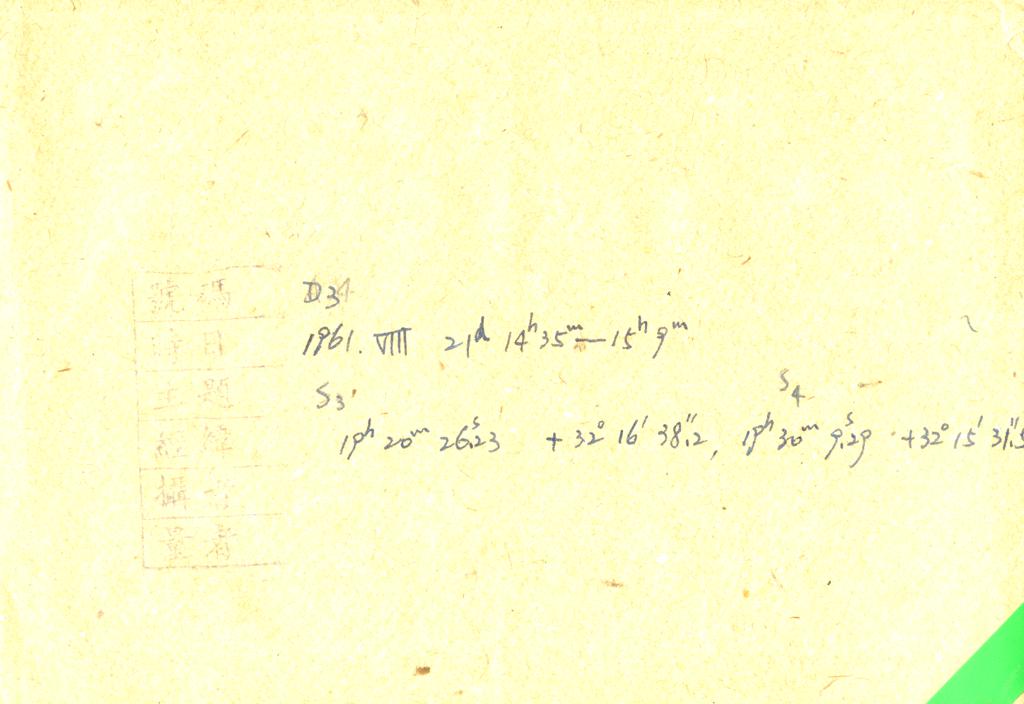 號碼 D34
時日 1961. VIII 21ᵈ 14ʰ35ᵐ—15ʰ9ᵐ
主題 S₃ S₄
經緯 19ʰ 20ᵐ 26ˢ.23 +32° 16′ 38″.2, 19ʰ 30ᵐ 9ˢ.29 +32° 15′ 31″.5
攝者
量者